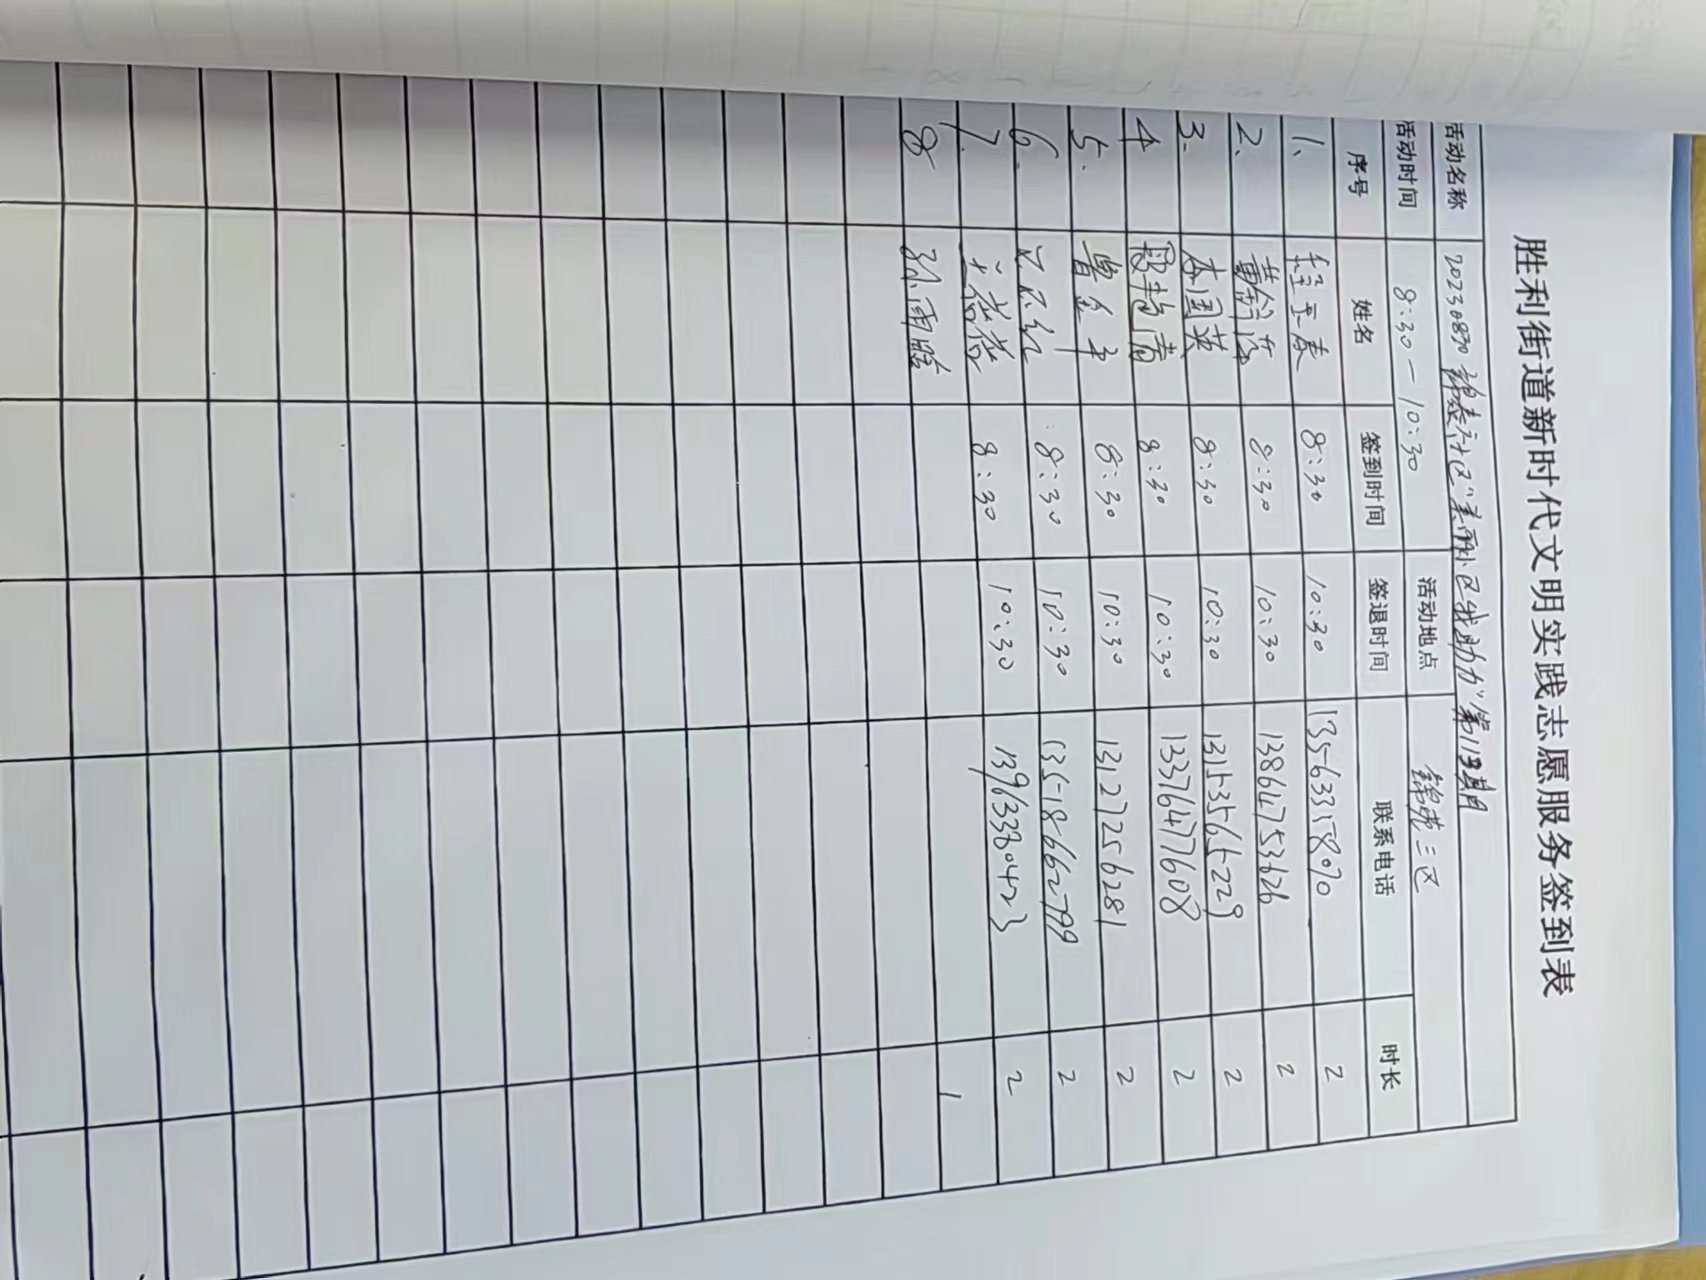 胜利街道新时代文明实践志愿服务签到表
活动名称 20230830 锦泰社区"美丽小区我助力"第113期
活动时间 8:30—10:30 活动地点 锦苑三区
序号 姓名 签到时间 签退时间 联系电话 时长
1、 8:30 10:30 13563315890 2
2、 8:30 10:30 13864753626 2
3. 本国英 8:30 10:30 13153565229 2
4 8:30 10:30 13376477608 2
5. 8:30 10:30 13127256281 2
6. 8:30 10:30 13518662799 2
7. 8:30 10:30 13963380423 2
8 孙雨晗 1